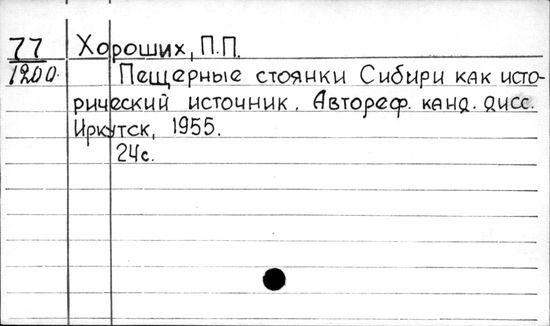 77 Хороших, П.П.
1200. Пещерные стоянки Сибири как исто-
рический источник. Автореф. канд. дисс.
Иркутск, 1955.
24с.